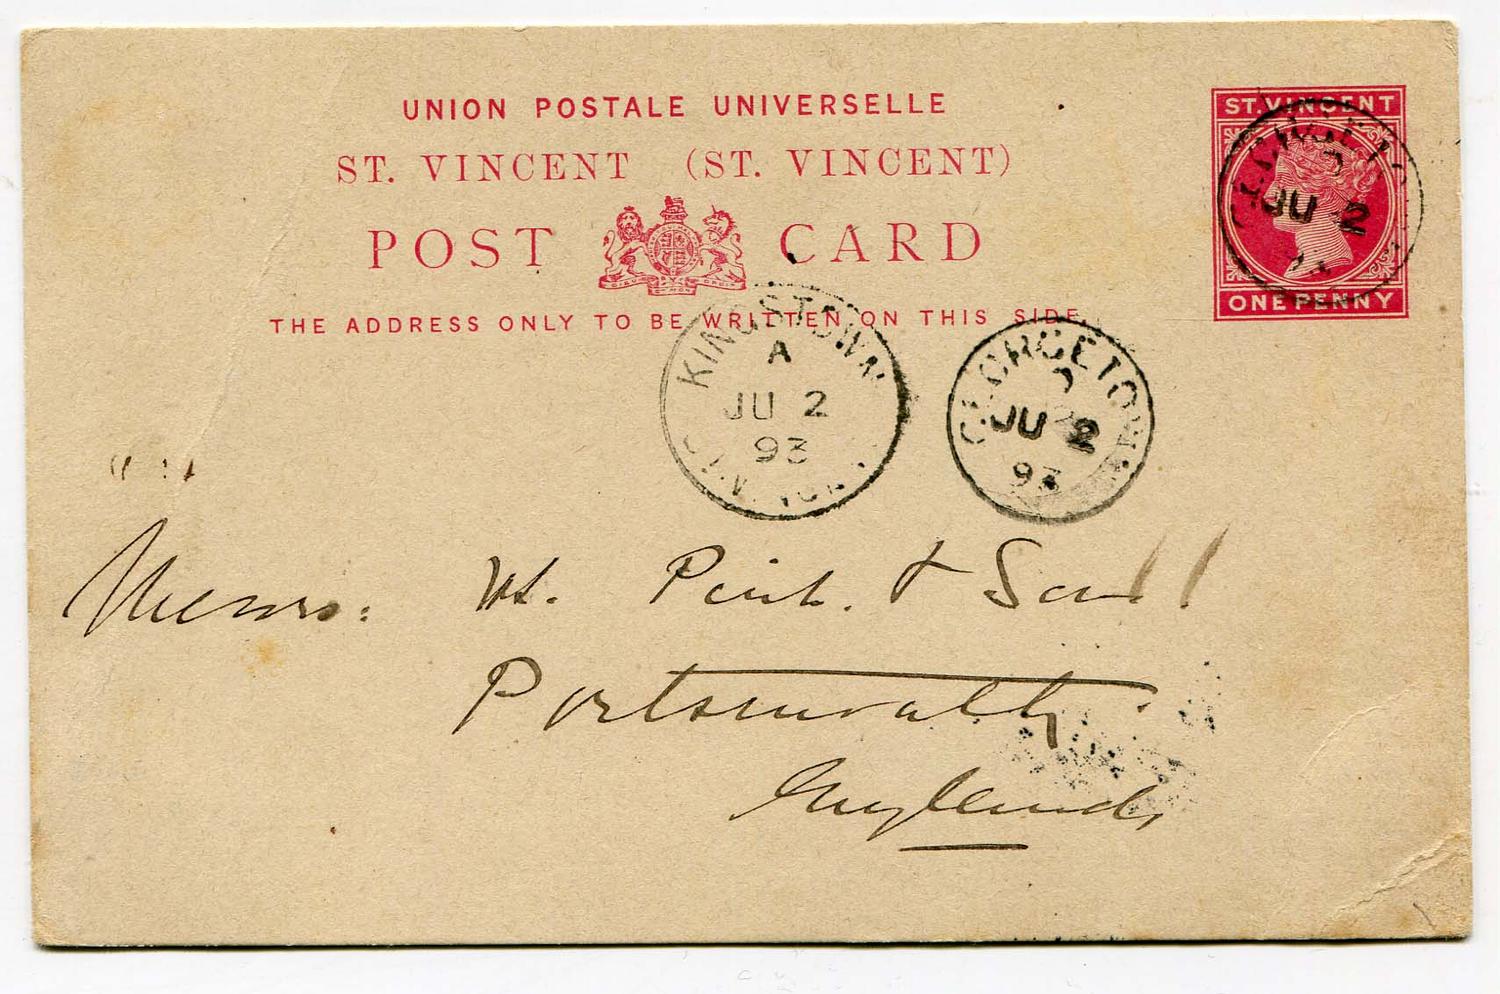 UNION POSTALE UNIVERSELLE
ST. VINCENT (ST. VINCENT)
POST CARD
THE ADDRESS ONLY TO BE WRITTEN ON THIS SIDE.
ST. VINCENT
ONE PENNY
GEORGETOWN
JU 2
KINGSTOWN
A
JU 2
93
ST. VINCENT
GEORGETOWN
JU 2
93
Messrs: W. Pink. & Son
Portsmouth
England,